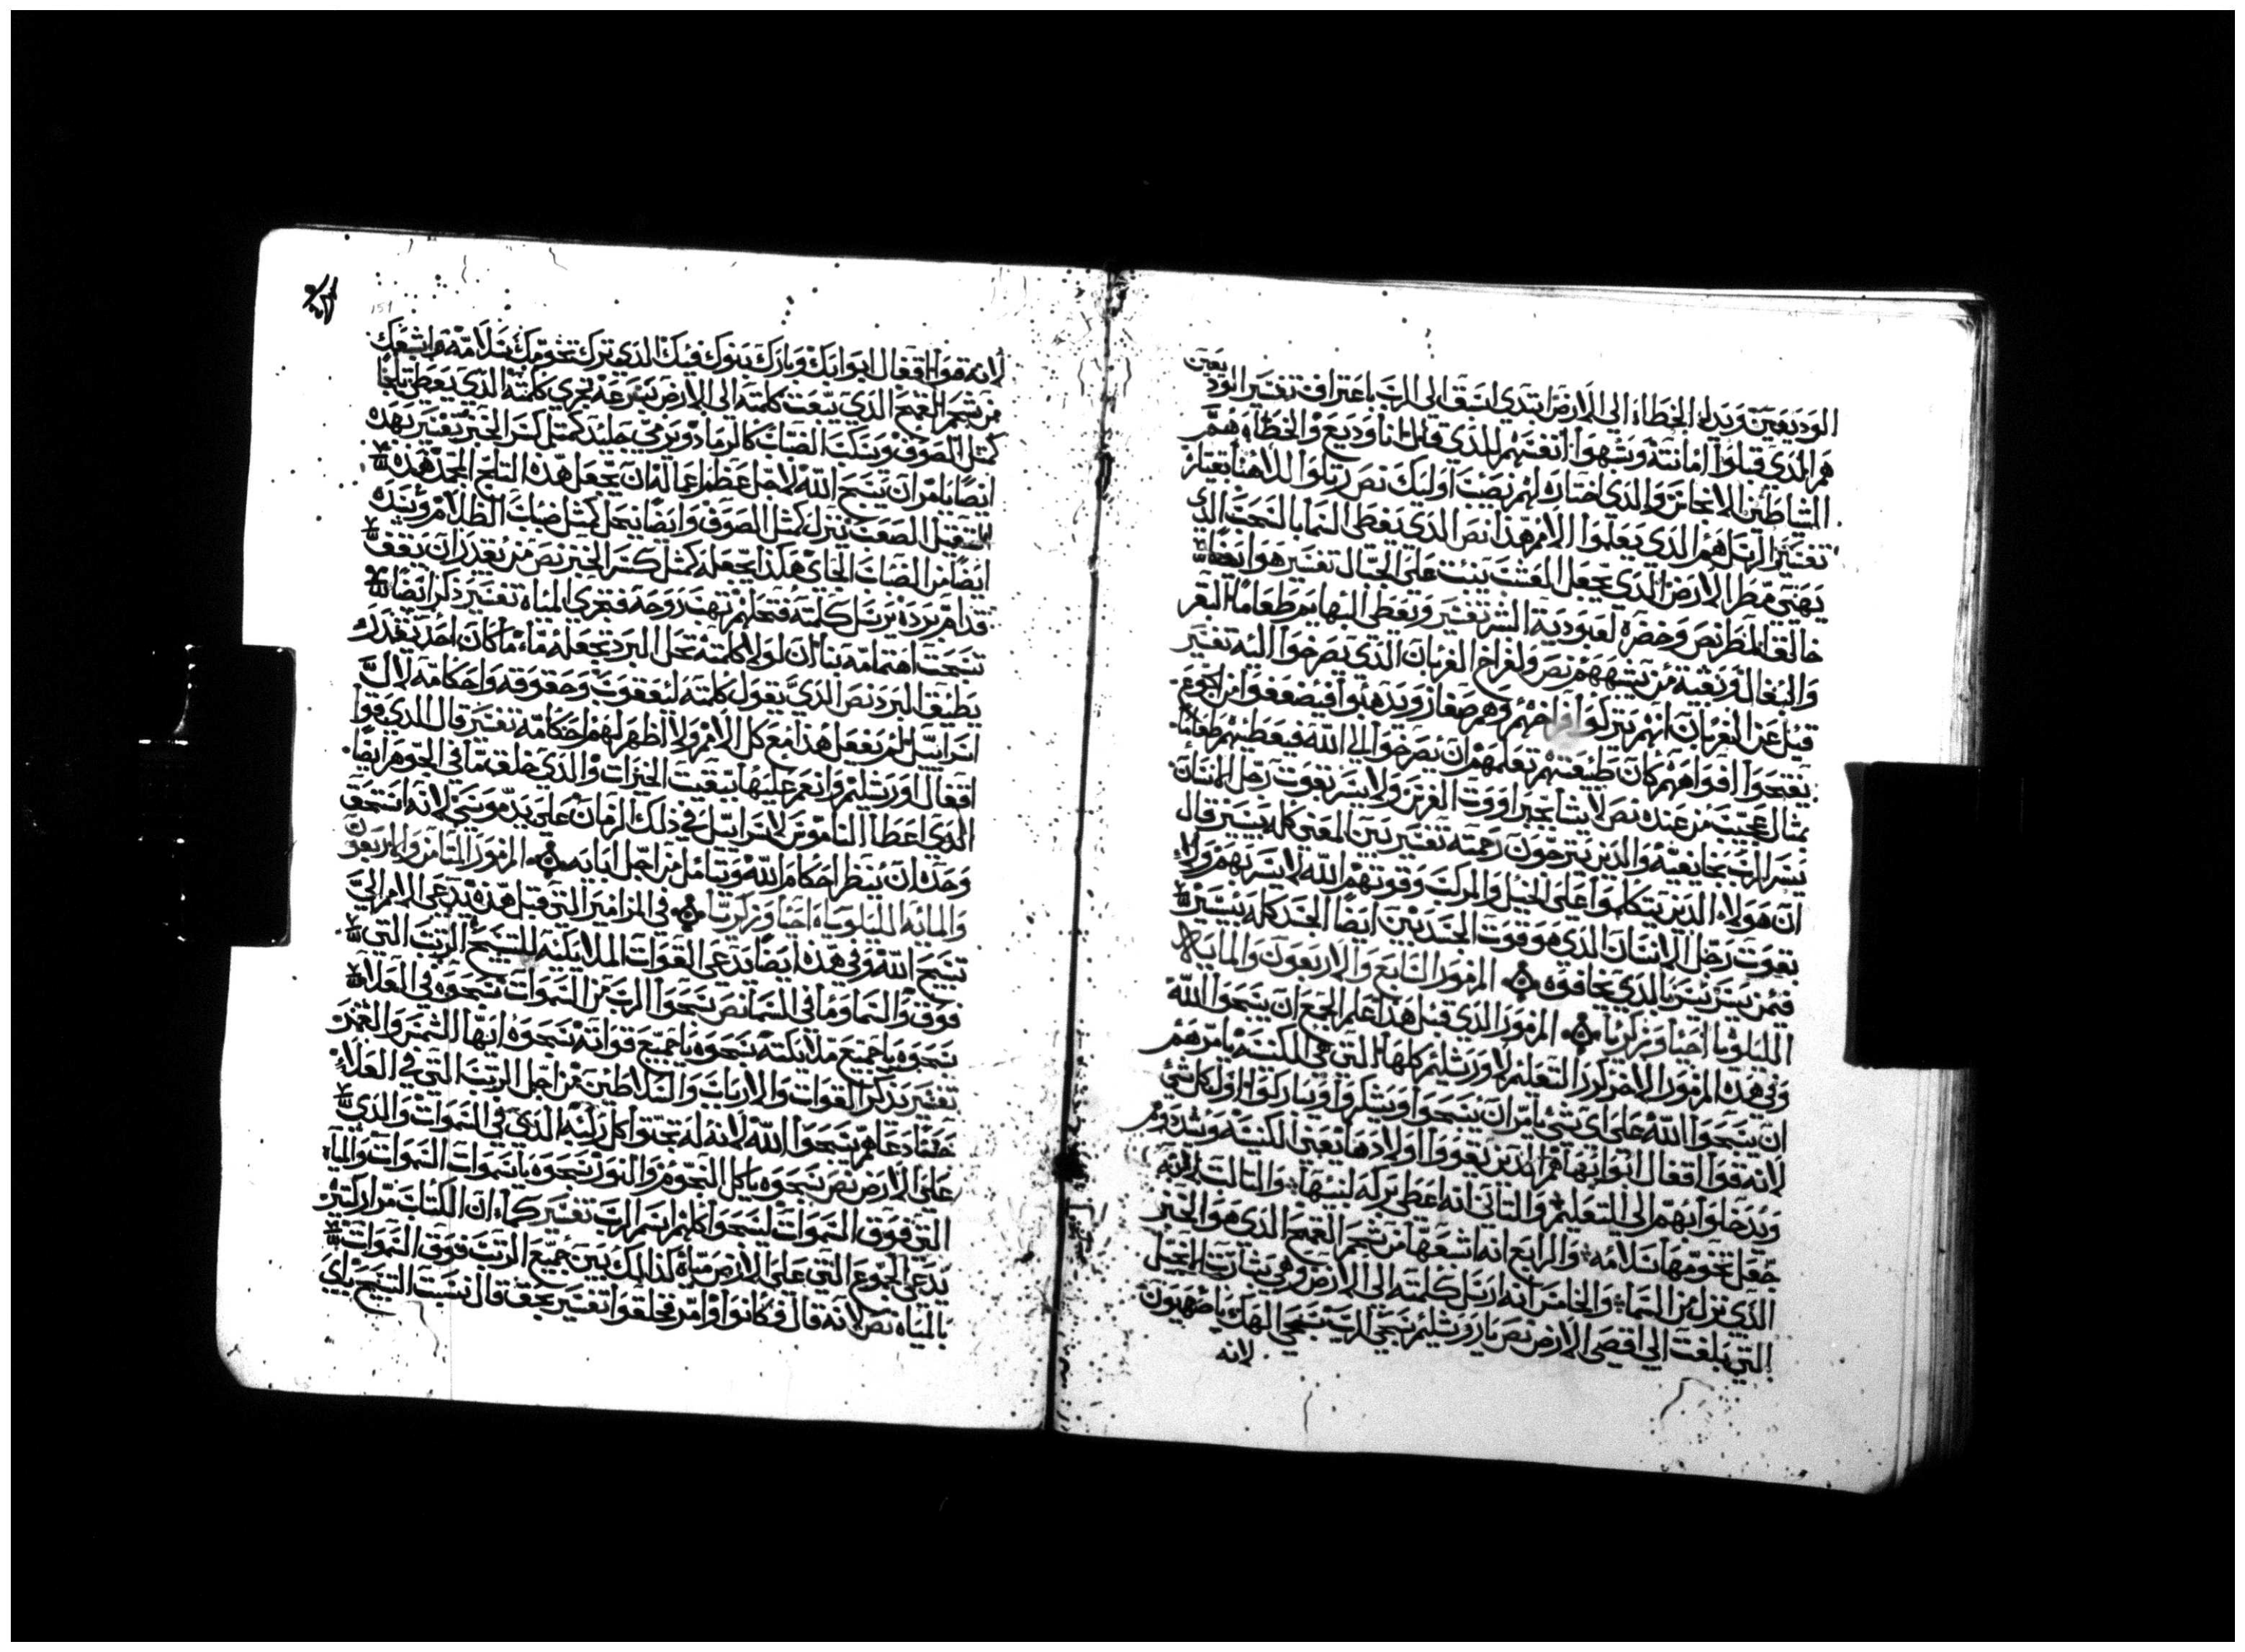 الوديعين ويدل الخطاه الى الارض ابتدى اسبق الى الرب باعتراف تفسير الود
يعين
هم الذي قبلوا امانته وشبهوا انفسهم للذي قال انا وديع والخطاه هم
الشياطين الانجاس والذي اختاره لهم نصيب اوليك نص رتلوا لالاهنا بقيتار
تفسير الرتل هم الذي يعلموا الامم هذا نص الذي يغطى السما بالسحب الذي
يهيى مطر الارض الذي يجعل العشب ينبت على الجبال تفسير هو ايضا
خالق المطر نص وخضره لعبودية البشر تفسير ويعطى البهايم طعاما البقر
والبغال وبقيه من يشبههم نص ولفراخ الغربان الذي يصرخوا اليه تفسير
قيل عن الغربان انهم يتركوا فراخهم وهم صغار ويدهبوا فيضعفوا من الجوع
يفتحوا افواههم كان طبيعتهم تعلمهم ان يصرخوا الى الله فيعطيهم طعاما
بمثال عجيب من عنده نص لا يشا بجبراووت الفرس ولا يسر بقوت رجل الانسان
يسر الرب بخايفيه والذين يترجون رحمته تفسير بين المعنى كله بيسير قال
ان هولاء الذين يتكلموا على الخيل والمركب وقوتهم الله لا يسر بهم ولا
بقوت رجل الانسان الذي هو قوت الجسديين ايضا الجسد كله بيسير
فمن يسر يسر بالذي يخافوه المزمور السابع والاربعون والمايه
الليلويا احيا وزكريا المزمور الذي قبل هدا علم الجمع ان يسبحوا الله
وفي هده المزمور الاخر كرز التعليم لاورشليم كلها التي هي الكنيسه يامرهم
ان يسبحوا الله على اى شي يامر ان يسبحوا ويشكروا ويباركوا اول كل شي
لانه قوا اقفال ابوابها هم الذين يقووا اولادها يعنى الكنيسه وشدوهم
ويدخلوا بهم الى التعليم والثاني انه اعطى بركه لبنيها والتالت لانه
جعل تخومها سلامه والرابع انه اشبعها من شحم القمح الذي هو الخبز
الذي نزل من السما والخامس انه ارسل كلمته الى الارض وهي بشارت الانجيل
التي بلغت الى اقصى الارض نص يا اورشليم سبحى الرب سبحى الهك يا صهيون
لانه
لانه قوا اقفال ابوابك وبارك بنوك فيك الذي ترك تخومك بسلامه واشبعك
من شحم القمح الذي يبعت كلمته الى الارض بسرعه تجري كلمته الذي يعطى تلجا
كمثل الصوف ويسكب الضباب كالرماد ويرمي جليد كمثل كسر الخبز تفسير بهده
ايضا يامر ان يسبح الله لاجل عظم اعماله ان يجعل هده التلج المجمد هده
الثقيل الصعب ينزل كمثل الصوف وايضا ينحل كمثل ضباب الظلام ويسك
ايضا من الضباب الجاى هكذا يجعله كمثل كسر الخبز نص من يقدر ان يقف
قدام برده يرسل كلمته فتحلهم تهب روحه فتجرى المياه تفسير ذكر ايضا
تسبحت اهتمامه بنا ان لولا كلمته تحل البرد تجعله ماء ما كان احد يقدر
يطيق البرد نص الذي يقول كلمته ليعقوب وحقوقه واحكامه لال
اسراييل لم يفعل هذا مع كل الامم ولا اظهر لهم احكامه تفسير قال الذي قوا
اقفال اورشليم وانعم عليها ببقيت الخيرات والذي خلقه ما في الجو هو ايضا
الذي اعطا الناموس لاسراييل في ذلك الزمان على يد موسى لانه استحق
وحده ان ينظر احكام الله ويتامل من اجل ابايه المزمور التامن والاربعون
والمايه الليلوياه احيا وزكريا في المزامير التي قبل هده يدعى الامم الى
تسبيح الله وفي هده ايضا يدعى القوات الملايكيه للتسبيح الرتب التي
فوق والسما وما في السما نص سبحوا الرب من السموات سبحوه في العلا
سبحوه يا جميع ملايكته سبحوه يا جميع قواته سبحوه ايها الشمس والقمر
تفسير يدكر القوات والارباب والسلاطين من اجل الرتب التي في العلا
حقا دعاهم يسبحوا الله لانه له تجثوا كل ركبه الذي في السموات والذي
على الارض نص سبحوه يا كل النجوم والنور سبحوه يا سموات السموات والمياه
التي فوق السموات ليسبحوا كلهم اسم الرب تفسير كما ان الكتاب مرار كثير
يدعى الجموع التي على الارض مياه كذلك بين جميع الرتب فوق السموات
بالمياه نص لانه قال فكانوا وامر فخلقوا تفسير بحق قال بسبب التسبيح باى